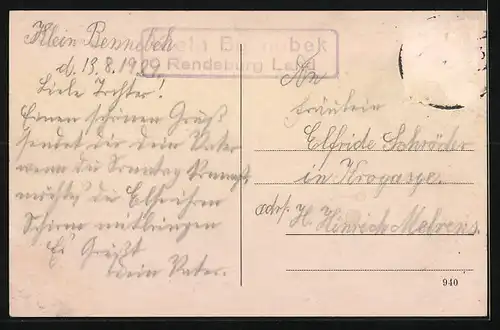 Klein Bennebek
d. 13.8.1929.
Liebe Tochter!
Einen schönen Gruß
sendet dir dein Vater
wenn du Sonntag kommst
möchtest du Elfr. ihren
Schirm mitbringen
Es Grüßt
dein Vater.
Klein Bennebek
Rendsburg Land
An
Fräulein
Elfride Schröder
in Kropp
adrs. H. Hinrich Mehrens.
940